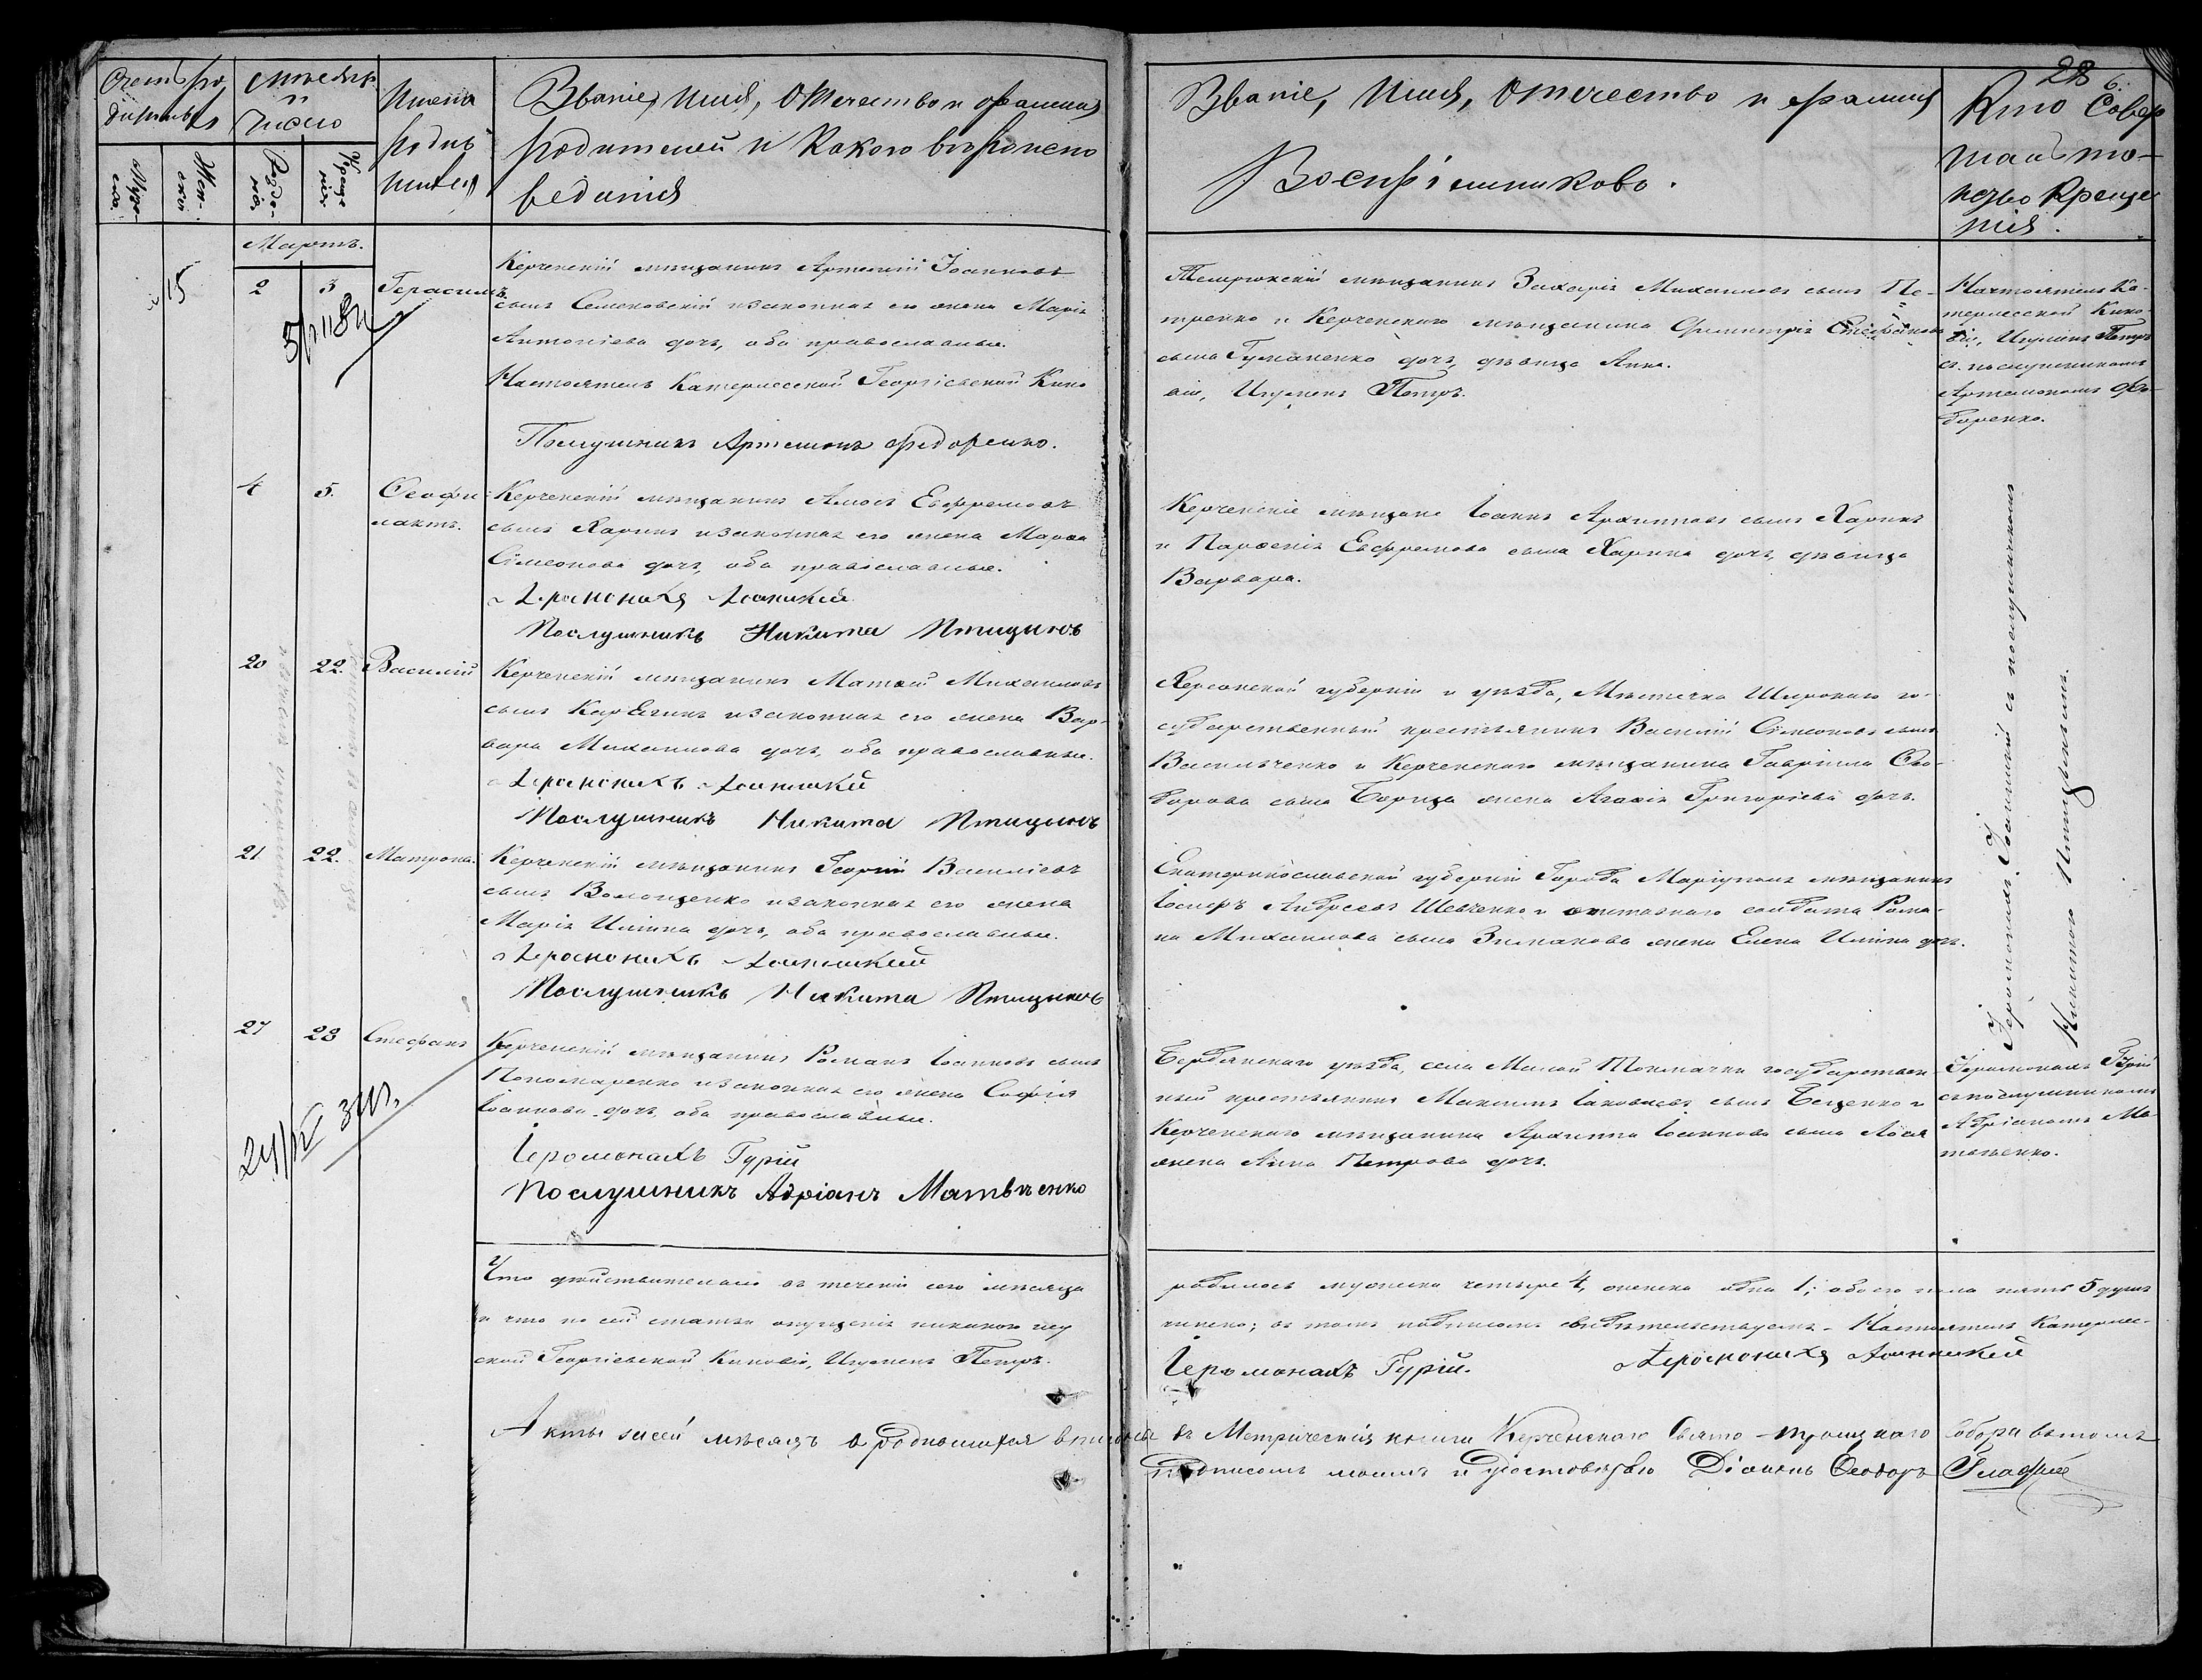 28 6.
Счетъ ро-
дившихъ
Мѣсяцъ
и
Число
Муже-
ска.
Жен-
ски
Рожде-
нія
Креще
нія
Имена
родив
шихся
Званіе, Имя, Отечество и фамилія
родителей и Какого вѣроиспо
веданія
Званіе, Имя, Отечество и фамилія
Воспріемниковъ.
Кто Совер
шалъ та-
инство Креще
нія.
Мартъ.
15
2 3 Герасимъ
Керченскій мѣщанинъ Артемій Іоанновъ
сынъ Семековскій и законная его жена Марія
Антоніева дочь, оба православные.
Настоятель Катерлесской Георгіевской Кино
Послушникъ Артемонъ Федоренко.
Темрюкскій мѣщанинъ Захарія Михаиловъ сынъ Пе-
тренко и Керченскаго мѣщанина Димитрія Стефанова
сына Гуманенко дочь, дѣвица Анна.
віи, Игуменъ Петръ.
Настоятель Ка-
терлесской Кино-
віи, Игуменъ Петръ
съ послушникомъ
Артемономъ Фе-
доренко.
4 5. Феофи-
лактъ.
Керченскій мѣщанинъ Амосъ Евфремовъ
сынъ Харинъ и законная его жена Марфа
Симеонова дочь, оба православные.
Іеромонахъ Іоаникій
Послушникъ Никита Птицынъ
Керченскіе мѣщане Іоаннъ Архиповъ сынъ Харинъ
и Парфенія Евфремова сына Харина дочь, дѣвица
Варвара.
20 22. Василій
Керченскій мѣщанинъ Матфій Михаиловъ
сынъ Карягинъ и законная его жена Вар-
вара Михаилова дочь, оба православные.
Іеромонахъ Іоаникій
Послушникъ Никита Птицынъ
Херсонской губерніи и уѣзда, Мѣстечка Широкаго го-
сударственный крестьянинъ Василій Симеоновъ сынъ
Васильченко и Керченскаго мѣщанина Гавріила Фео-
дорова сына Борица жена Агафія Григоріева дочь.
Іеромонахъ Іоаникій съ послушникомъ
Никитою Птицынымъ.
21 22. Матрона.
Керченскій мѣщанинъ Георгій Василіевъ
сынъ Волощенко и законная его жена
Марія Иліина дочь, оба православные.
Іеромонахъ Іоаникій
Послушникъ Никита Птицынъ
Екатеринославской губерніи Города Маріуполя мѣщанинъ
Іосифъ Андреевъ Шевченко и отставнаго солдата Рома-
на Михаилова сына Зимакова жена Елена Иліина дочь.
27 28 Стефанъ
Керченскій мѣщанинъ Романъ Іоанновъ сынъ
Пономаренко и законная его жена Софія
Іоаннова дочь, оба православные.
Іеромонахъ Гурій
Послушникъ Адріанъ Матвѣенко
Бердянскаго уѣзда, села Малой Токмачки государствен-
ный крестьянинъ Максимъ Іаковлевъ сынъ Беценко и
Керченскаго мѣщанина Архиппа Іоаннова сына Лося
жена Анна Петрова дочь.
Іеромонахъ Гурій
съ послушникомъ
Адріаномъ Ма-
твѣенко.
Что дѣйствительно въ теченіи сего мѣсяца
родилось мужеска четыре 4, женска одна 1; обоего пола пять 5 душъ
и что по сей статьи опущенія никакого неу
чинено; въ томъ подписомъ свидѣтельствуемъ. Настоятель Катерлес-
ской Георгіевской Киновіи, Игуменъ Петръ.
Іеромонахъ Гурій. Іеромонахъ Іоанникій
Акты за сей мѣсяцъ о родившихся вписаны въ Метрическія книги Керченскаго Свято-Троицкаго Собора въ томъ
подписомъ моимъ и удостовѣряю Діаконъ Феодоръ Гладкій